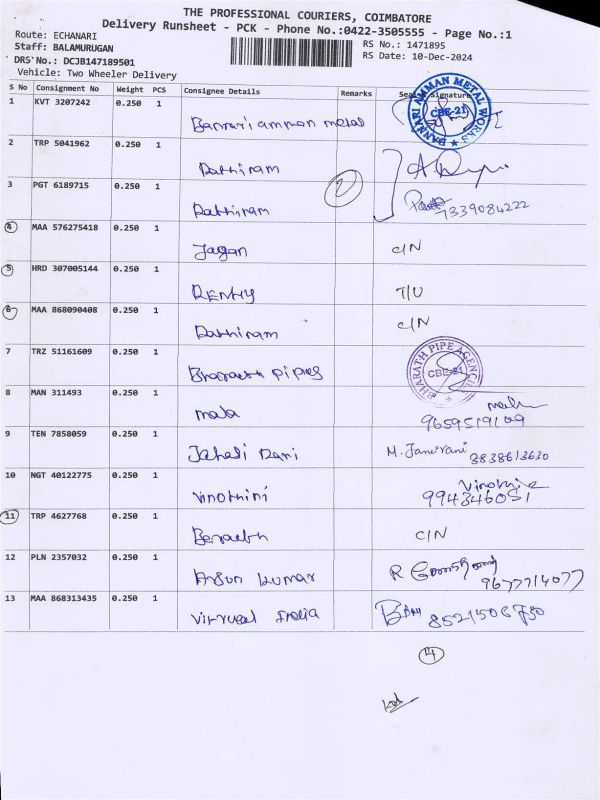 THE PROFESSIONAL COURIERS, COIMBATORE
Delivery Runsheet - PCK - Phone No.:0422-3505555 - Page No.:1
Route: ECHANARI RS No.: 1471895
Staff: BALAMURUGAN RS Date: 10-Dec-2024
DRS No.: DCJB147189501
Vehicle: Two Wheeler Delivery
S No Consignment No Weight PCS Consignee Details Remarks Seal Signature
1 KVT 3207242 0.250 1 Bannari amman metal BANNARI AMMAN METAL WORKS CBE-21
2 TRP 5041962 0.250 1 Pathiram
3 PGT 6189715 0.250 1 Pathiram 2 7339084222
4 MAA 576275418 0.250 1 Jagan C/N
5 HRD 307005144 0.250 1 T/U
6 MAA 868090408 0.250 1 Pathiram C/N
7 TRZ 51161609 0.250 1 Bharath pipes BHARATH PIPE AGENCIES CBE-21
8 MAN 311493 0.250 1 mala 9659519109
9 TEN 7858059 0.250 1 Rani M. Jansirani 3838613630
10 NGT 40122775 0.250 1 Vinothini 994346051
11 TRP 4627768 0.250 1 C/N
12 PLN 2357032 0.250 1 Arjun kumar R 9677714077
13 MAA 868313435 0.250 1 India 8521506730